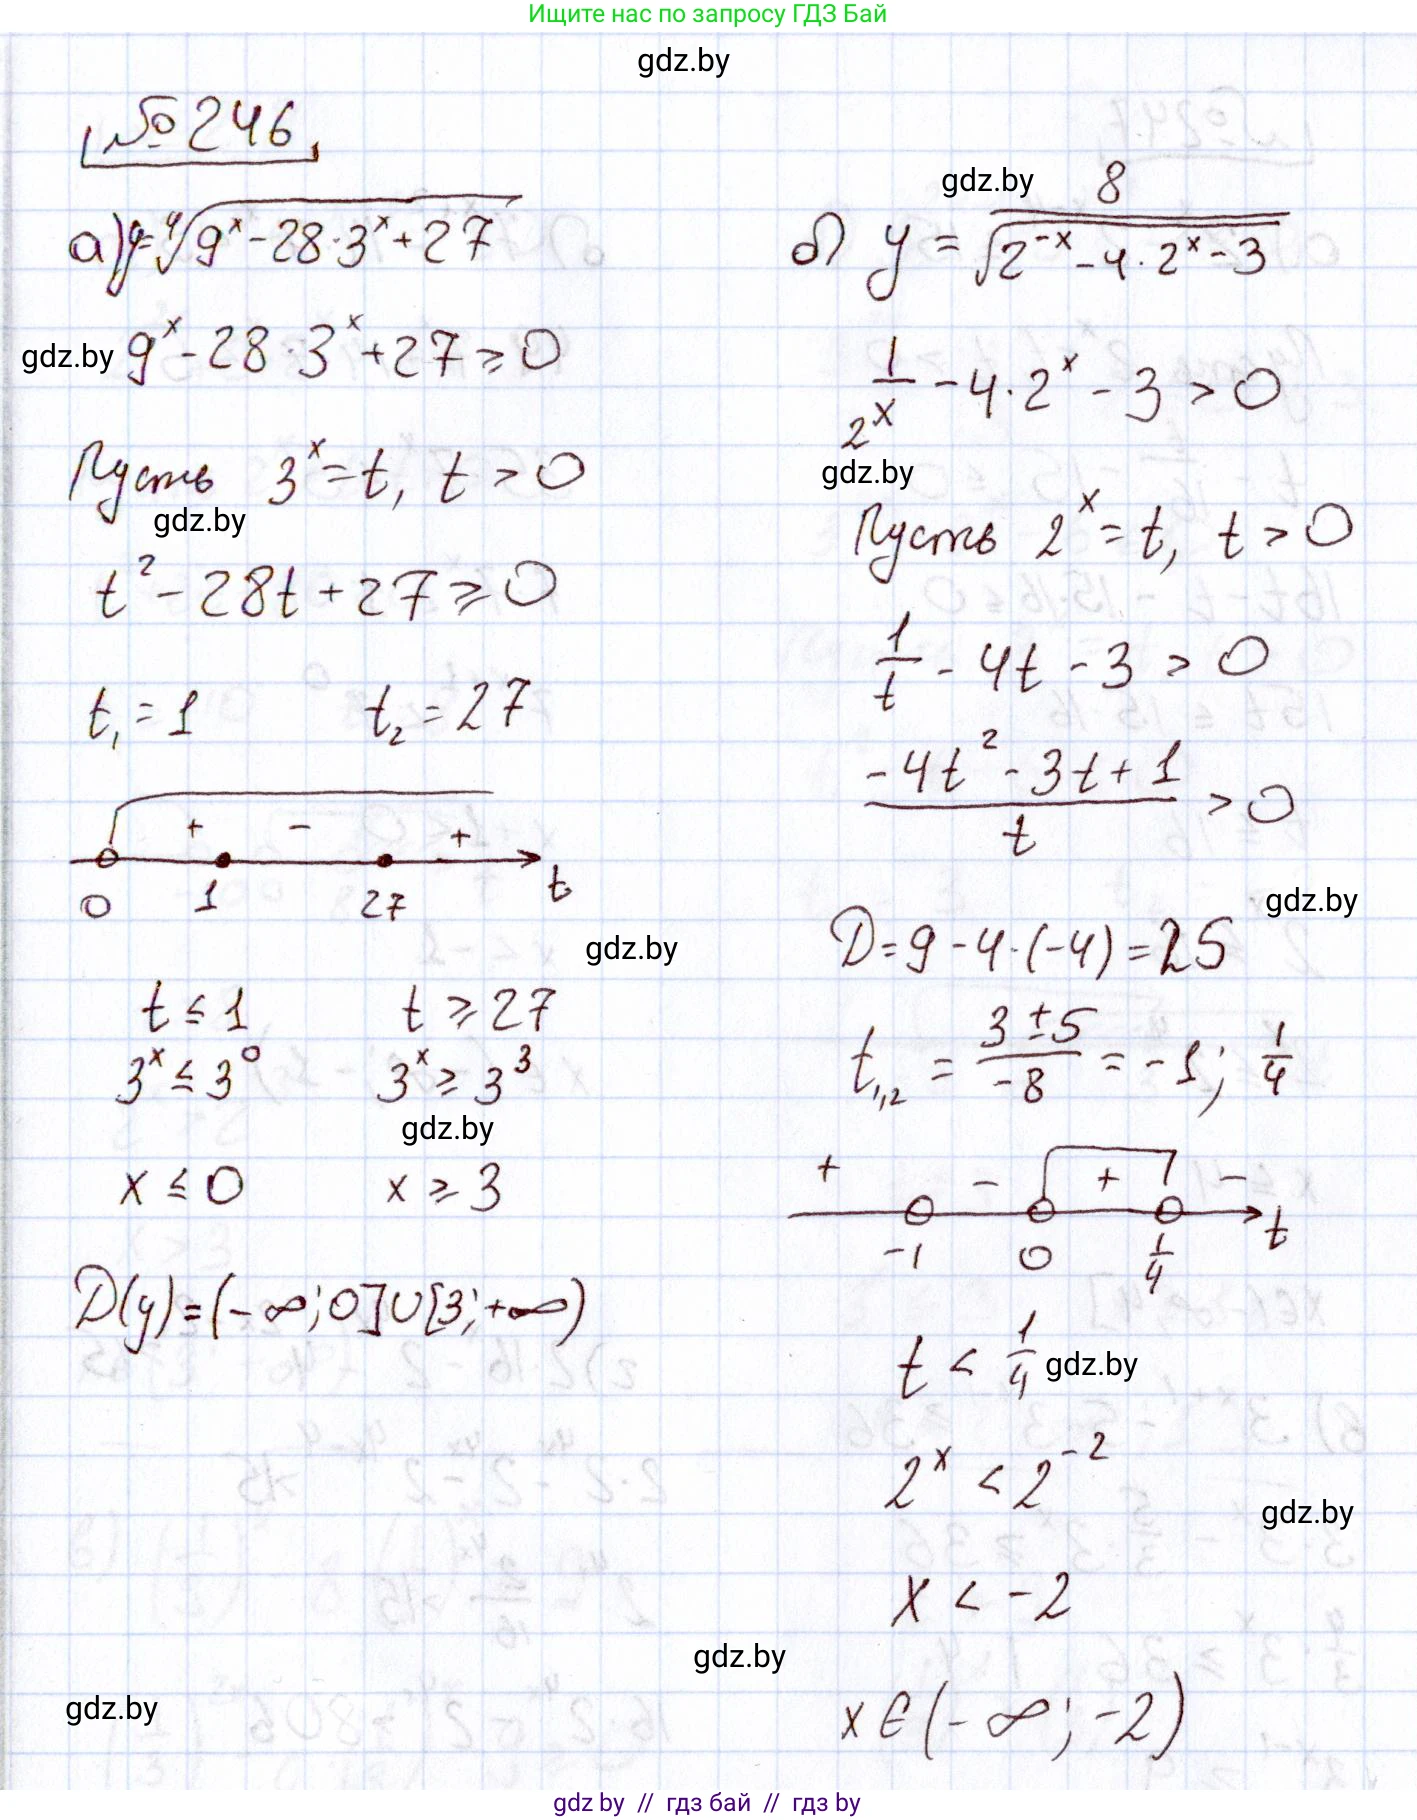 Ищите нас по запросу ГДЗ Бай
gdz.by
№246
а) y = ⁴√(9ˣ - 28·3ˣ + 27)
gdz.by
9ˣ - 28·3ˣ + 27 ≥ 0
Пусть 3ˣ = t, t > 0
gdz.by
t² - 28t + 27 ≥ 0
t₁ = 1 t₂ = 27
+ - +
0 1 27 t
gdz.by
t ≤ 1 t ≥ 27
3ˣ ≤ 3⁰ 3ˣ ≥ 3³
gdz.by
x ≤ 0 x ≥ 3
D(y) = (-∞; 0] ∪ [3; +∞)
gdz.by
gdz.by
б) y = 8/√(2⁻ˣ - 4·2ˣ - 3)
1/2ˣ - 4·2ˣ - 3 > 0
gdz.by
Пусть 2ˣ = t, t > 0
1/t - 4t - 3 > 0
(-4t² - 3t + 1)/t > 0
gdz.by
D = 9 - 4·(-4) = 25
t₁,₂ = (3 ± 5)/-8 = -1; 1/4
+ - + -
-1 0 1/4 t
t < 1/4
gdz.by
2ˣ < 2⁻²
gdz.by
x < -2
gdz.by
x ∈ (-∞; -2)
gdz by // гдз бай // гдз by